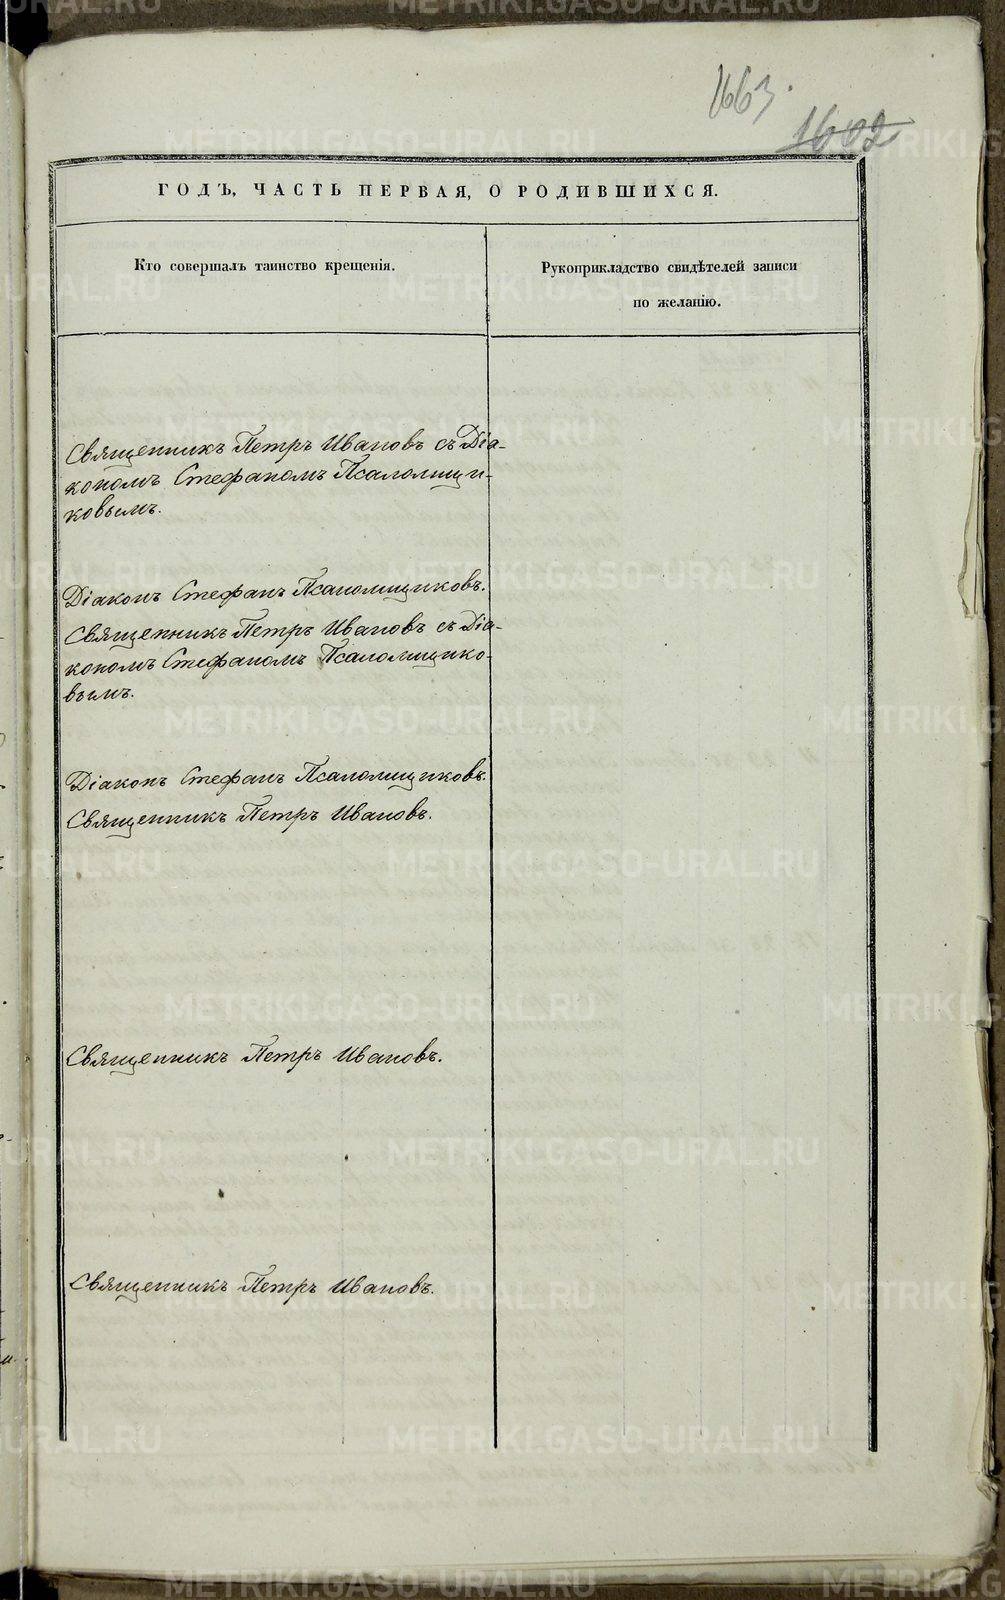 1663.
1602
ГОДЪ, ЧАСТЬ ПЕРВАЯ, О РОДИВШИХСЯ.
Кто совершалъ таинство крещенія.
Рукоприкладство свидѣтелей записи
по желанію.
Священникъ Петръ Ивановъ съ Діа-
кономъ Стефаномъ Псаломщи-
ковымъ.
Діаконъ Стефанъ Псаломщиковъ.
Священникъ Петръ Ивановъ съ Діа-
кономъ Стефаномъ Псаломщико-
вымъ.
Діаконъ Стефанъ Псаломщиковъ.
Священникъ Петръ Ивановъ.
Священникъ Петръ Ивановъ.
Священникъ Петръ Ивановъ.
METRIKI.GASO-URAL.RU